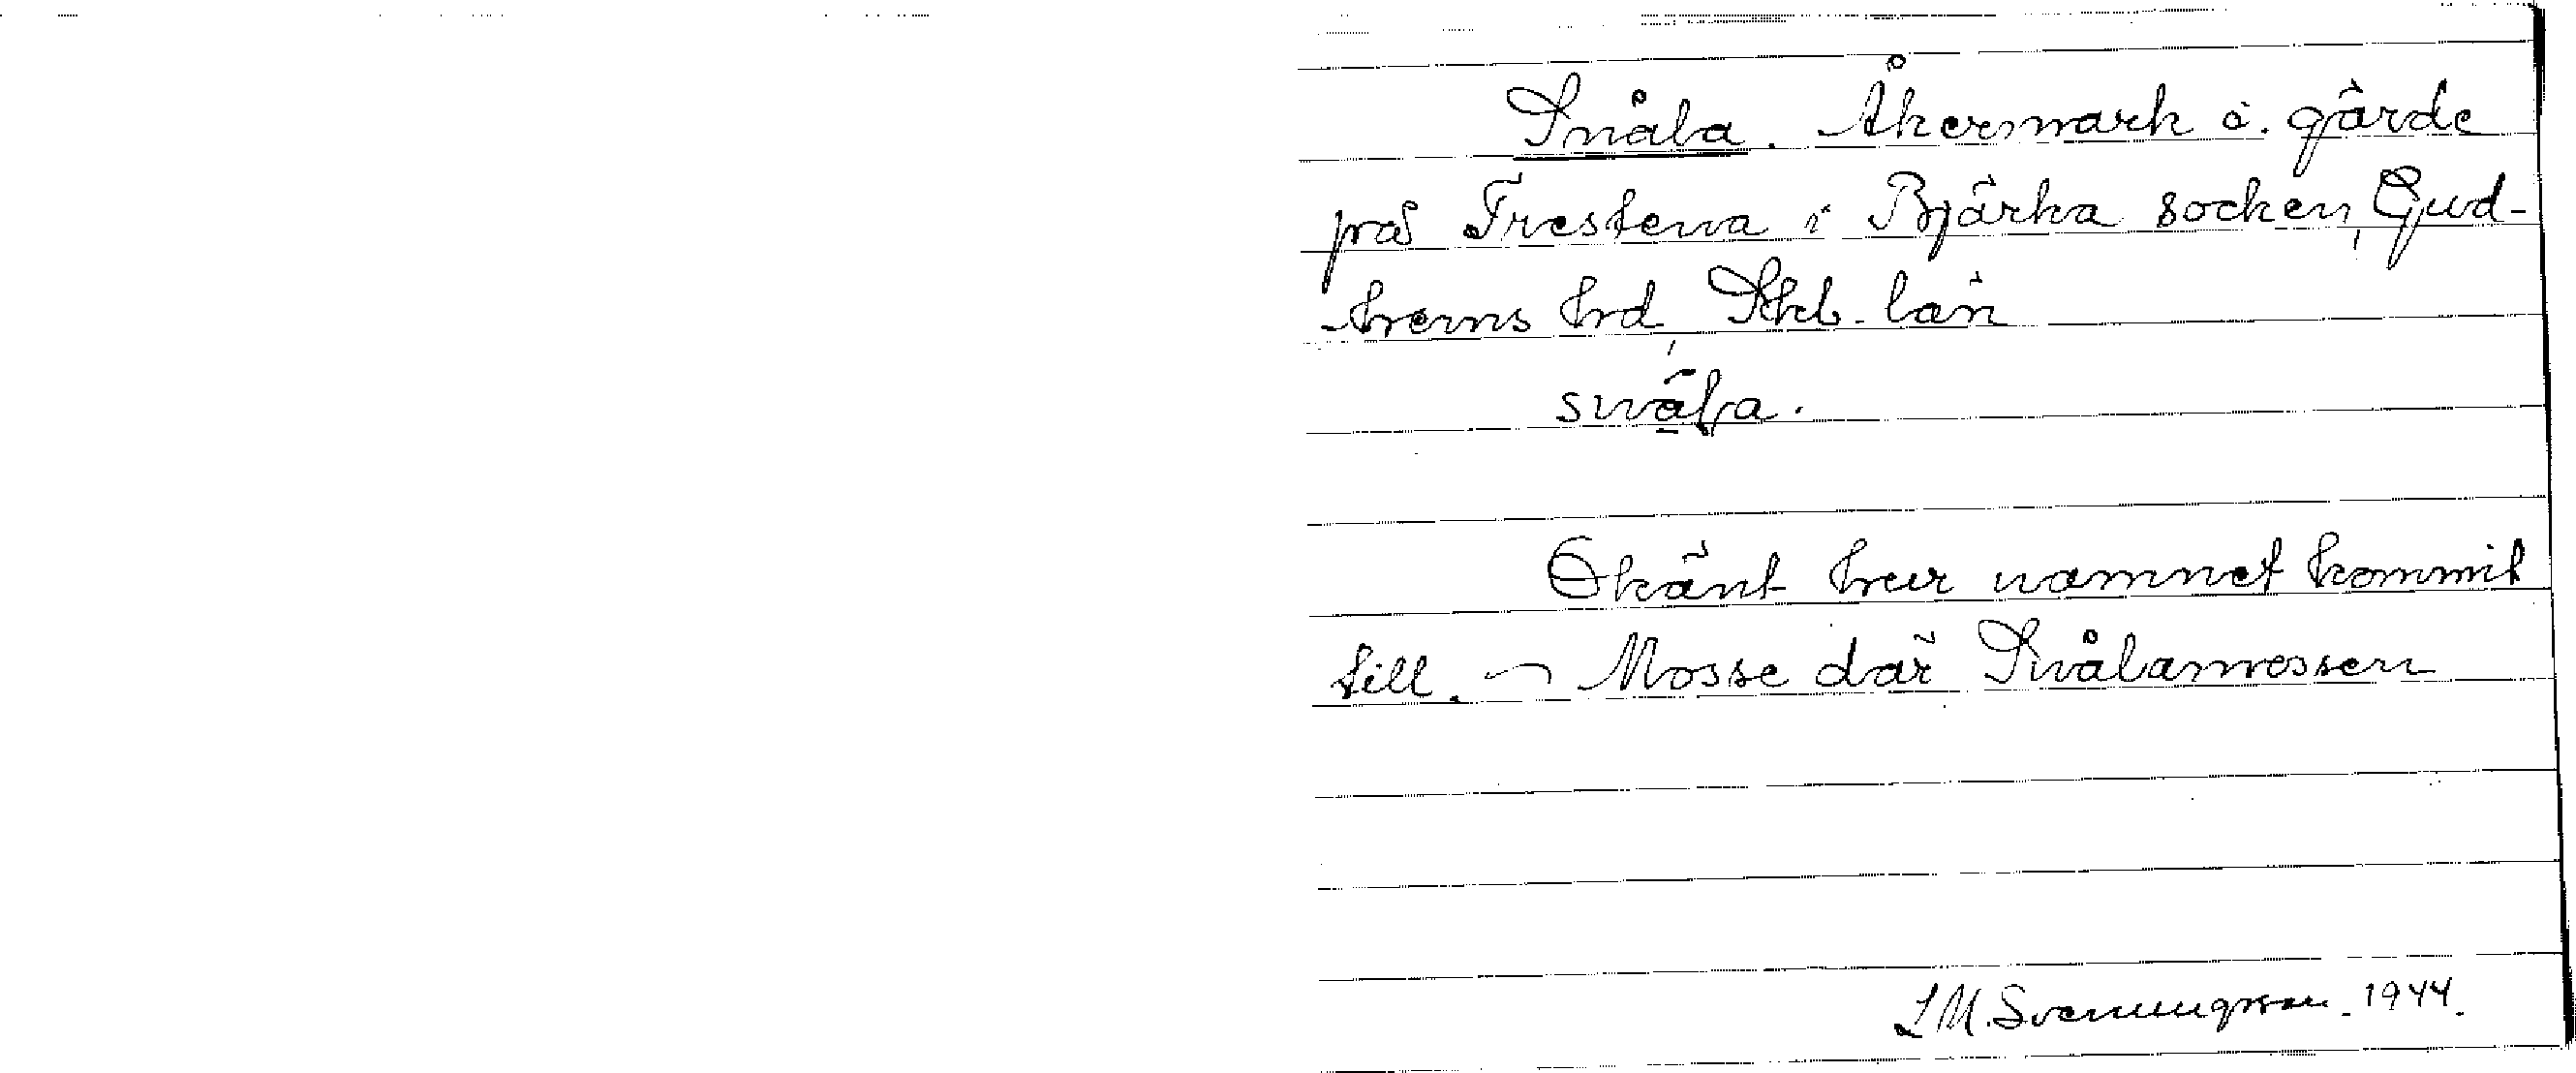 Snåla. Åkermark o. gärde
på Frestena i Bjärka socken, Gud-
hems hrd, Skb. län
snåla.
Okänt hur namnet kommit
till. ~ Mosse där Snålamossen
L M. Svenungsson. 1944.